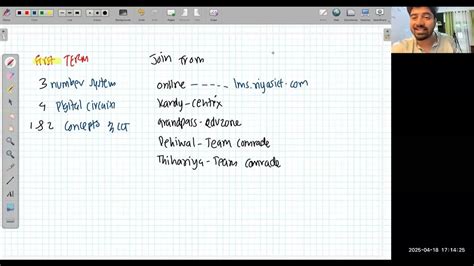 First TERM
3 number system
4 Digital circuits
1 & 2 concepts of ICT
Join from
online ----- lms.riyasict.com
kandy - centrix
grandpass - eduzone
Dehiwal - Team comrade
Thihariya - Team comrade
2025-04-18 17:14:25